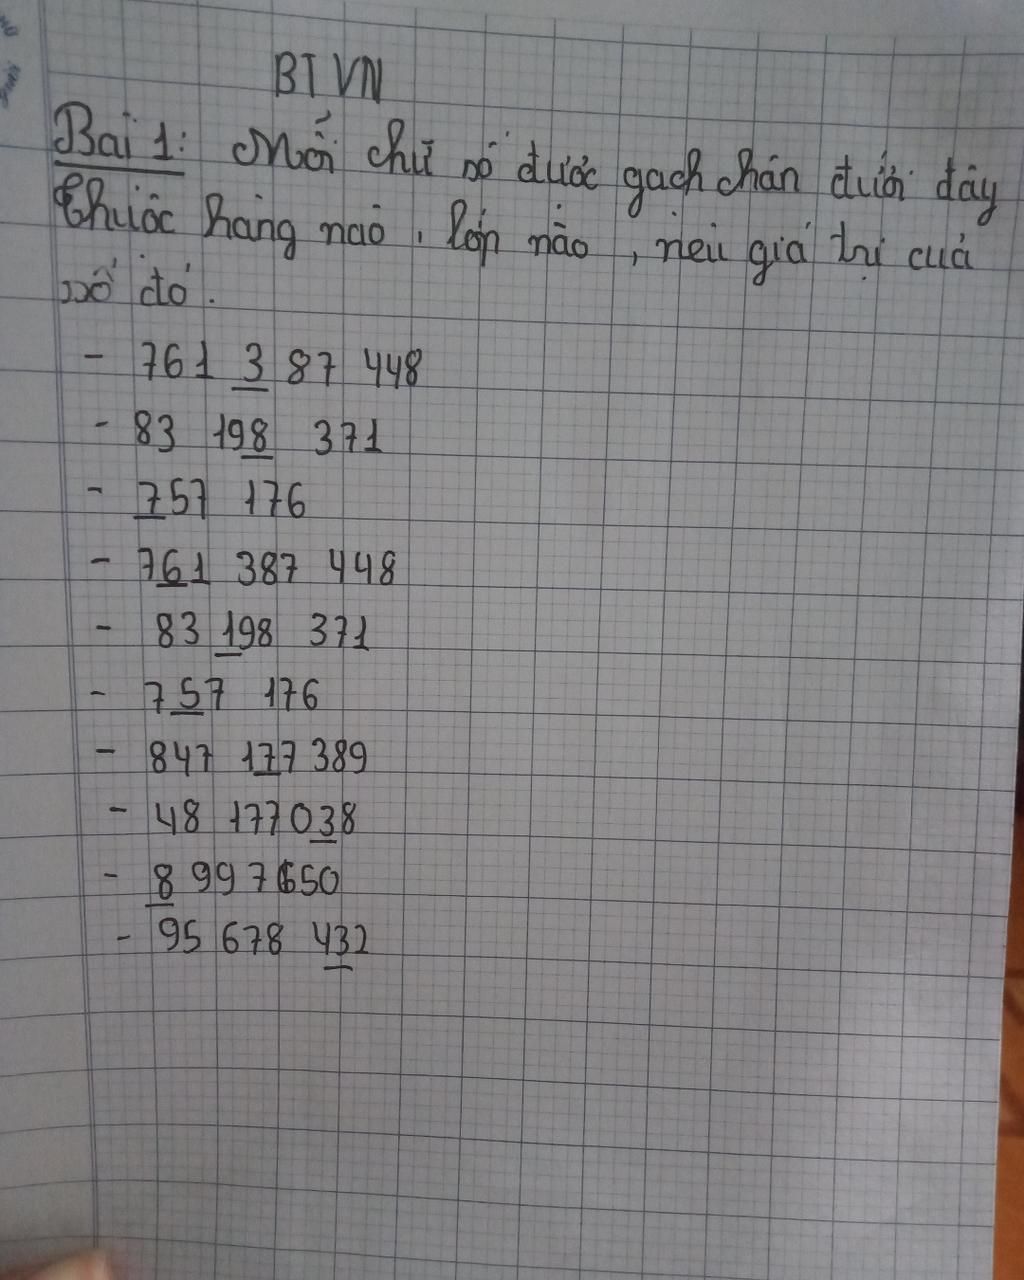 BTVN
Bài 1: Mỗi chữ số được gạch chân dưới đây
thuộc hàng nào, lớp nào, nêu giá trị của
số đó.
- 761 3 87 448
- 83 198 371
- 757 176
- 761 387 448
- 83 198 371
- 757 176
- 847 177 389
- 48 177038
- 8 997650
- 95 678 432